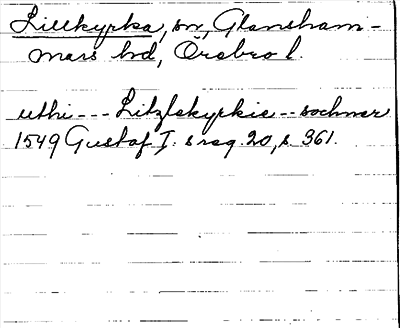 Lillkyrka, sn, Glansham-
mars hd, Örebro l.
uthi --- Litzlekyrkie -- sochner
1549 Gustaf I:s reg. 20, s. 361.